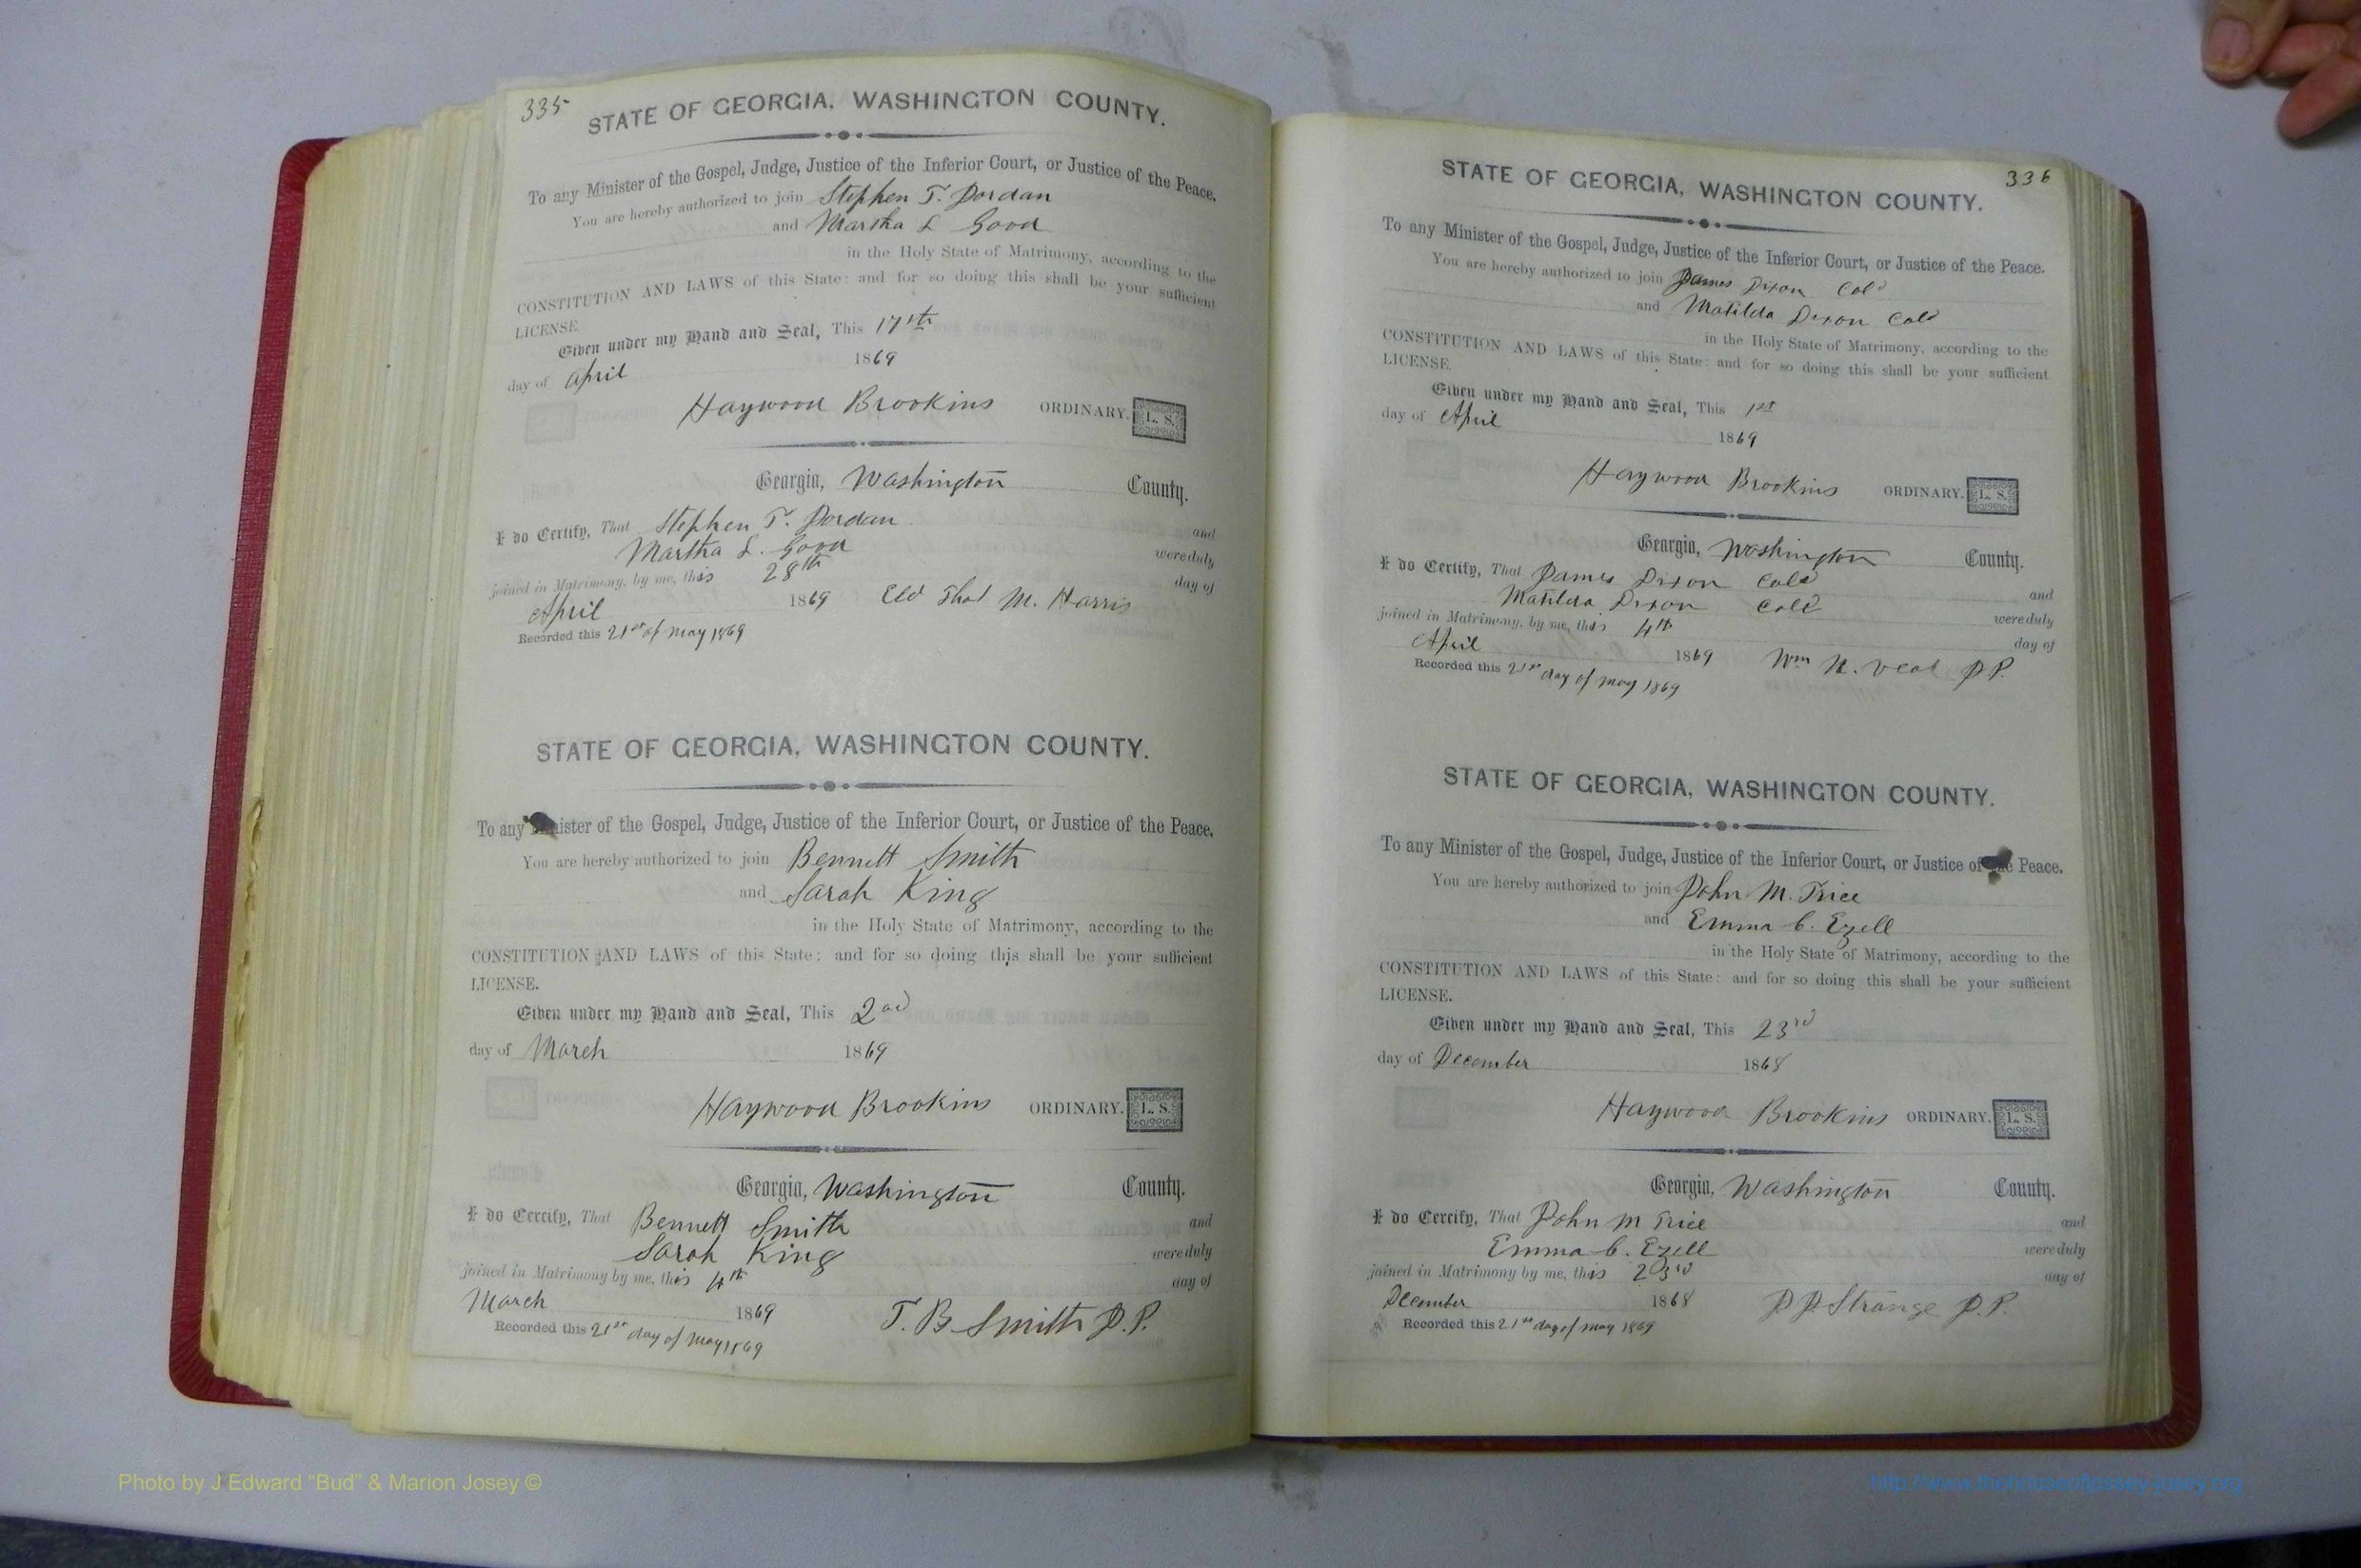 335
STATE OF GEORGIA, WASHINGTON COUNTY.
To any Minister of the Gospel, Judge, Justice of the Inferior Court, or Justice of the Peace.
You are hereby authorized to join Stephen T. Jordan
and Martha L Good
in the Holy State of Matrimony, according to the
CONSTITUTION AND LAWS of this State: and for so doing this shall be your sufficient
LICENSE.
Given under my Hand and Seal, This 17th
day of April 1869
Haywood Brookins ORDINARY. L. S.
Georgia, Washington County.
I do Certify, That Stephen T. Jordan and
Martha L. Good were duly
joined in Matrimony, by me, this 28th day of
April 1869 Eld Thos M. Harris
Recorded this 21st of May 1869
STATE OF GEORGIA, WASHINGTON COUNTY.
To any Minister of the Gospel, Judge, Justice of the Inferior Court, or Justice of the Peace.
You are hereby authorized to join Bennett Smith
and Sarah King
in the Holy State of Matrimony, according to the
CONSTITUTION AND LAWS of this State: and for so doing this shall be your sufficient
LICENSE.
Given under my Hand and Seal, This 2nd
day of March 1869
Haywood Brookins ORDINARY. L. S.
Georgia, Washington County.
I do Cercify, That Bennett Smith and
Sarah King were duly
joined in Matrimony by me, this 4th day of
March 1869 T. B. Smith J.P.
Recorded this 21st day of May 1869
336
STATE OF GEORGIA, WASHINGTON COUNTY.
To any Minister of the Gospel, Judge, Justice of the Inferior Court, or Justice of the Peace.
You are hereby authorized to join James Dixon Cold
and Matilda Dixon Cold
in the Holy State of Matrimony, according to the
CONSTITUTION AND LAWS of this State: and for so doing this shall be your sufficient
LICENSE.
Given under my Hand and Seal, This 1st
day of April 1869
Haywood Brookins ORDINARY. L. S.
Georgia, Washington County.
I do Certify, That James Dixon Cold and
Matilda Dixon Cold were duly
joined in Matrimony, by me, this 4th day of
April 1869 Wm N. Veal J.P.
Recorded this 21st day of May 1869
STATE OF GEORGIA, WASHINGTON COUNTY.
To any Minister of the Gospel, Judge, Justice of the Inferior Court, or Justice of the Peace.
You are hereby authorized to join John M. Trice
and Emma C. Ezell
in the Holy State of Matrimony, according to the
CONSTITUTION AND LAWS of this State: and for so doing this shall be your sufficient
LICENSE.
Given under my Hand and Seal, This 23rd
day of December 1868
Haywood Brookins ORDINARY. L. S.
Georgia, Washington County.
I do Cercify, That John M Trice and
Emma C. Ezell were duly
joined in Matrimony by me, this 23rd day of
December 1868 Strange J.P.
Recorded this 21st day of May 1869
Photo by J Edward "Bud" & Marion Josey ©